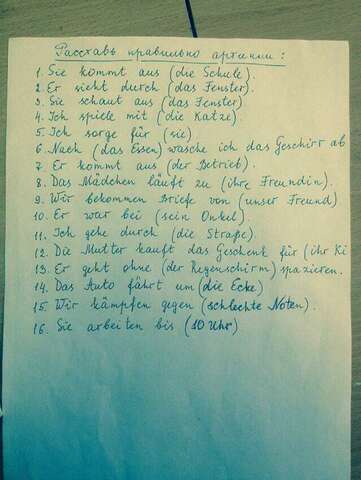 Расставь правильно артикли:
1. Sie kommt aus (die Schule).
2. Er sieht durch (das Fenster).
3. Sie schaut aus (das Fenster)
4. Ich spiele mit (die Katze).
5. Ich sorge für (sie).
6. Nach (das Essen) wasche ich das Geschirr ab
7. Er kommt aus (der Betrieb).
8. Das Mädchen läuft zu (ihre Freundin).
9. Wir bekommen Briefe von (unser Freund)
10. Er war bei (sein Onkel).
11. Ich gehe durch (die Straße).
12. Die Mutter kauft das Geschenk für (ihr Ki
13. Er geht ohne (der Regenschirm) spazieren.
14. Das Auto fährt um (die Ecke)
15. Wir kämpfen gegen (schlechte Noten).
16. Sie arbeiten bis (10 Uhr)